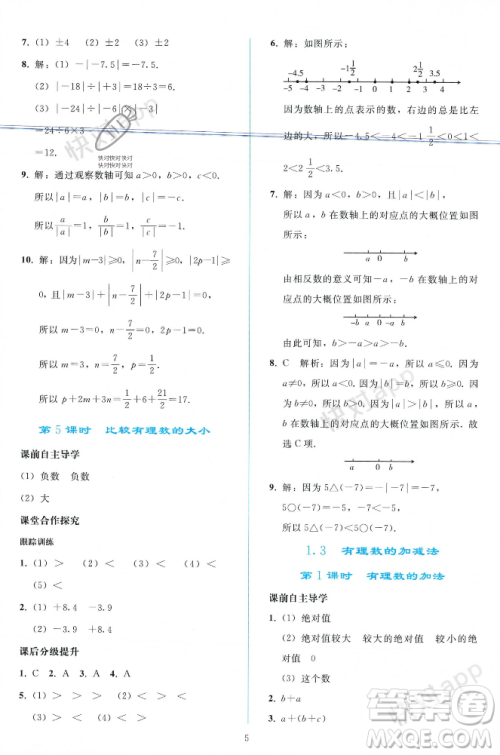 7. (1) ±4　(2) ±4
8. 解：(1) -|-7.5|=-7.5.
(2) |-18|÷|+3|=18÷3=6.
(3) |-24|÷|-6|×|-3|
=24÷6×3
=12.
9. 解：通过观察数轴可知 b>0, a<0.
所以|a|=-a, |b|=b.
所以
10. 解：因为|m-3|≥0, |n-7/2|≥0, |2p-1|≥
0, 且|m-3|+|n-7/2|+|2p-1|=0,
所以 m-3=0, n-7/2=0, 2p-1=0.
所以 m=3, n=7/2, p=1/2.
所以 p+2n+3m=1/2+
第5课时　比较有理数的大小
课前自主导学
(1) 负数　负数
(2) 大
课堂合作探究
跟踪训练
1. (1) >　(2) >　(3) <　(4) >
(5) <
2. (1) +8.4　-3.9
(2) -3.9　+8.4
课后分级提升
1. C　2. A　3. A　4. A
5. (1) >　(2) >　(3) <　(4) >
(5) <　(6) >
6. 解：如图所示.
-4.5　-1 1/2　0　1/2　2 1/2　3.5
-5 -4 -3 -2 -1 0 1 2 3 4
因为数轴上的点表示的数，右边的总比左
边的大，所以-4.5<-4<-1 1/2<0<1/2<
1<2<2 1/2<3.5.
7. 解：因为a<0, b>0, |a|<|b|,
所以a，b在数轴上的对应点的大概位置如图
所示.
a　0　b
由相反数的意义可知-b，-a在数轴上的对
应点的大概位置如图所示：
-b　a　0　-a　b
由此可知，b>-a>a>-b.
8. C　解析：因为|a|=-a，所以a≤0. 因为
a≠0，所以a<0. 因为|b|=b，所以b≥0. 因为
b≠0，所以b>0. 因为|a|>|b|，所以a，b在
数轴上的对应点的大概位置如图所示. 故
选C项.
a　0　b
9. 解：因为5△(-7)=-|-7|=-7,
5○(-7)=-5, -7<-5,
所以5△(-7)<5○(-7).
1.3　有理数的加减法
第1课时　有理数的加法
课前自主导学
1. (1) 绝对值
(2) 绝对值较大　较大的绝对值　较小的绝
对值　0
(3) 这个数
2. b+a
3. a+(b+c)
5
快对快对快对
快对快对快对
快对app
答案圈